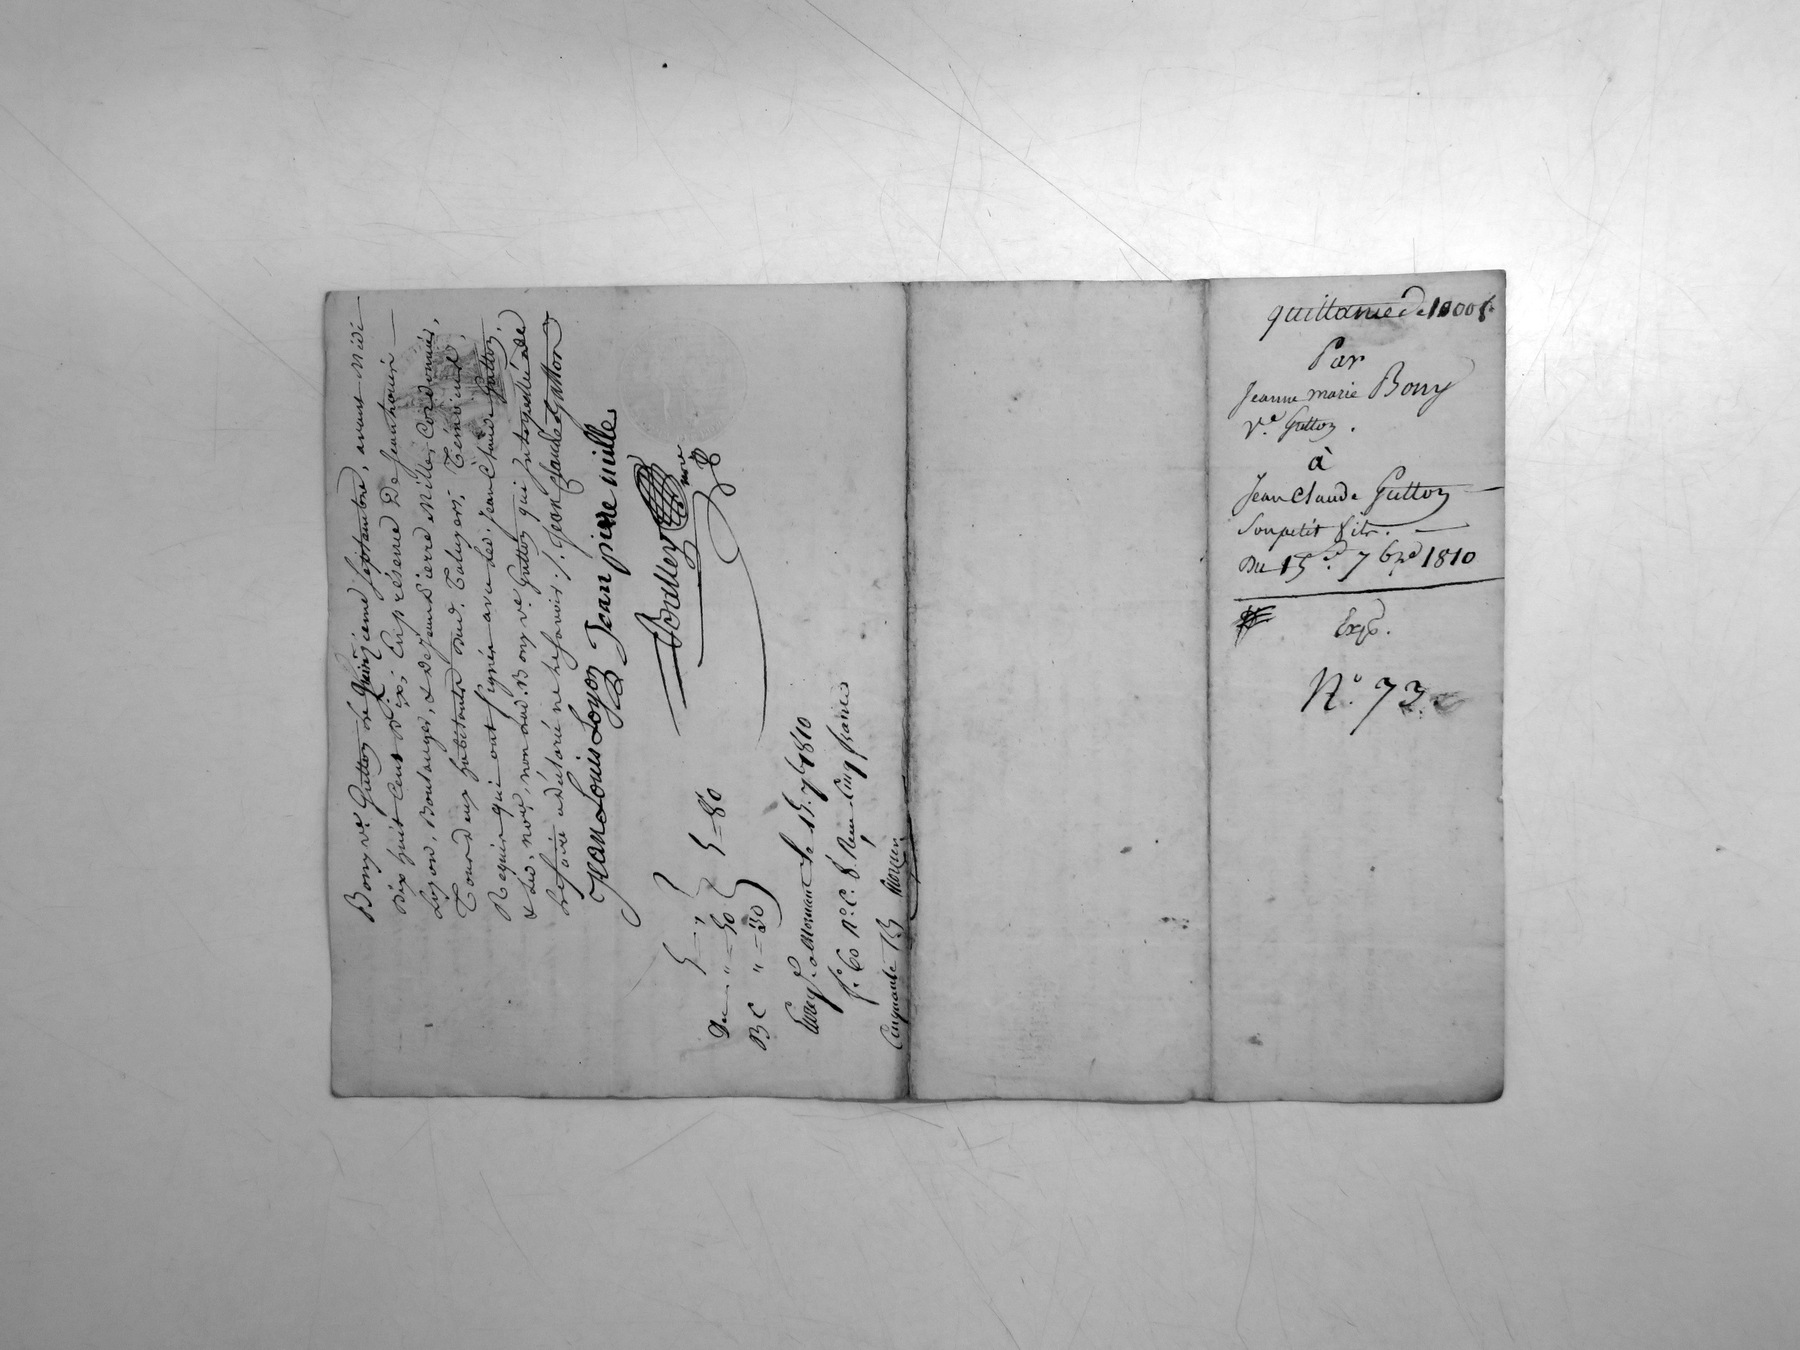 Bony ve. Guttoz le quinzieme septembre, avant Midi
Dix huit Cent dix; En présence De Jean Louis
Loyon, Boulanger, & de Jean Pierre Mille, Cordonnier,
Tous deux habitants dud. Taluyers, Témoins
Requis qui ont signés avec led. Jean Claude Guttoz
& led. nore, non lad. Bony ve. Guttoz qui Interpellée de
le faire a déclaré ne le savoir ./. Jean Claude Gutton
Jean Louis Loyon Jean pierre mille
nore
Du 5 = "
" = 50
B C " = 30
5 = 80
Enreg. a Mornant le 15. 7bre 1810
f.o 60 R.o C. 8. Reçu Cinq francs
Cinquante
quittance de 1000 f.
Par
Jeanne marie Bony
Ve. Guttoz.
à
Jean Claude Guttoz
Son petit fils.
Du 15e. 7bre 1810
Exp.
N.o 73.